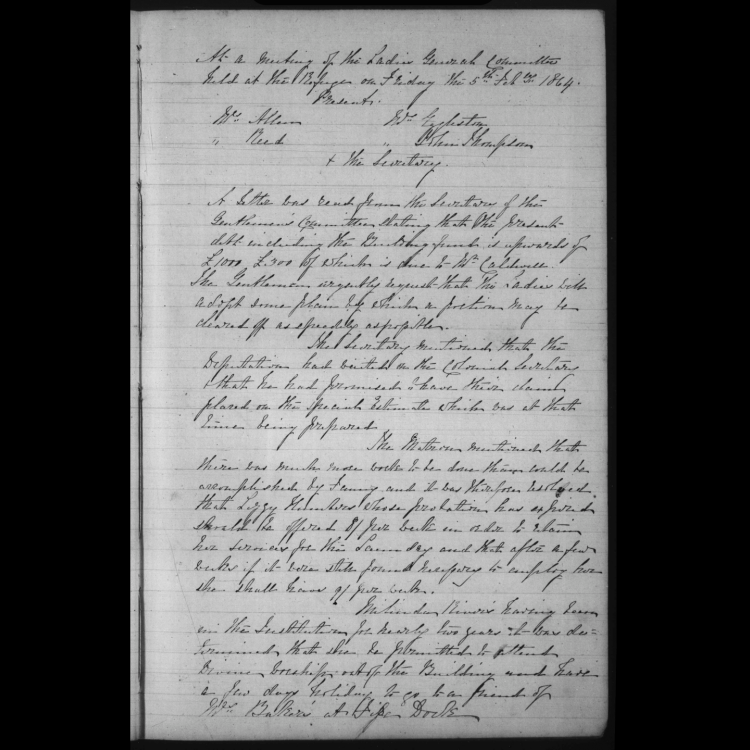 At a meeting of the Ladies General Committee
held at the Refuge on Friday the 5th Feby 1864.
Present.
Mrs Allen Mrs Egglestone
" Reed " John Thompson
+ the Secretary.
A letter was read from the Secretary of the
Gentlemen's Committee stating that the present
debt including the Building fund is upwards of
£1000 £ of which is due to Mr Caldwell.
The Gentlemen urgently request that the Ladies will
adopt some plan by which a portion may be
cleared off as speedily as possible.
The Secretary mentioned that the
Deputation had waited on the Colonial Secretary
& that he had promised to have their claim
placed on the Special Estimate which was at that
time being prepared
The Matron mentioned that
there was much more work to be done than could be
accomplished by and it was therefore resolved
that Lizzy whose probation has expired
should be offered per week in order to retain
her services for the Laundry and that after a few
weeks if it were still found necessary to employ her
she shall have per week.
Melinda having been
in the Institution for nearly two years it was de-
termined that she be permitted to attend
Divine worship out of the Building and have
a few days holiday to go to a friend of
Mrs Baker's at Dock